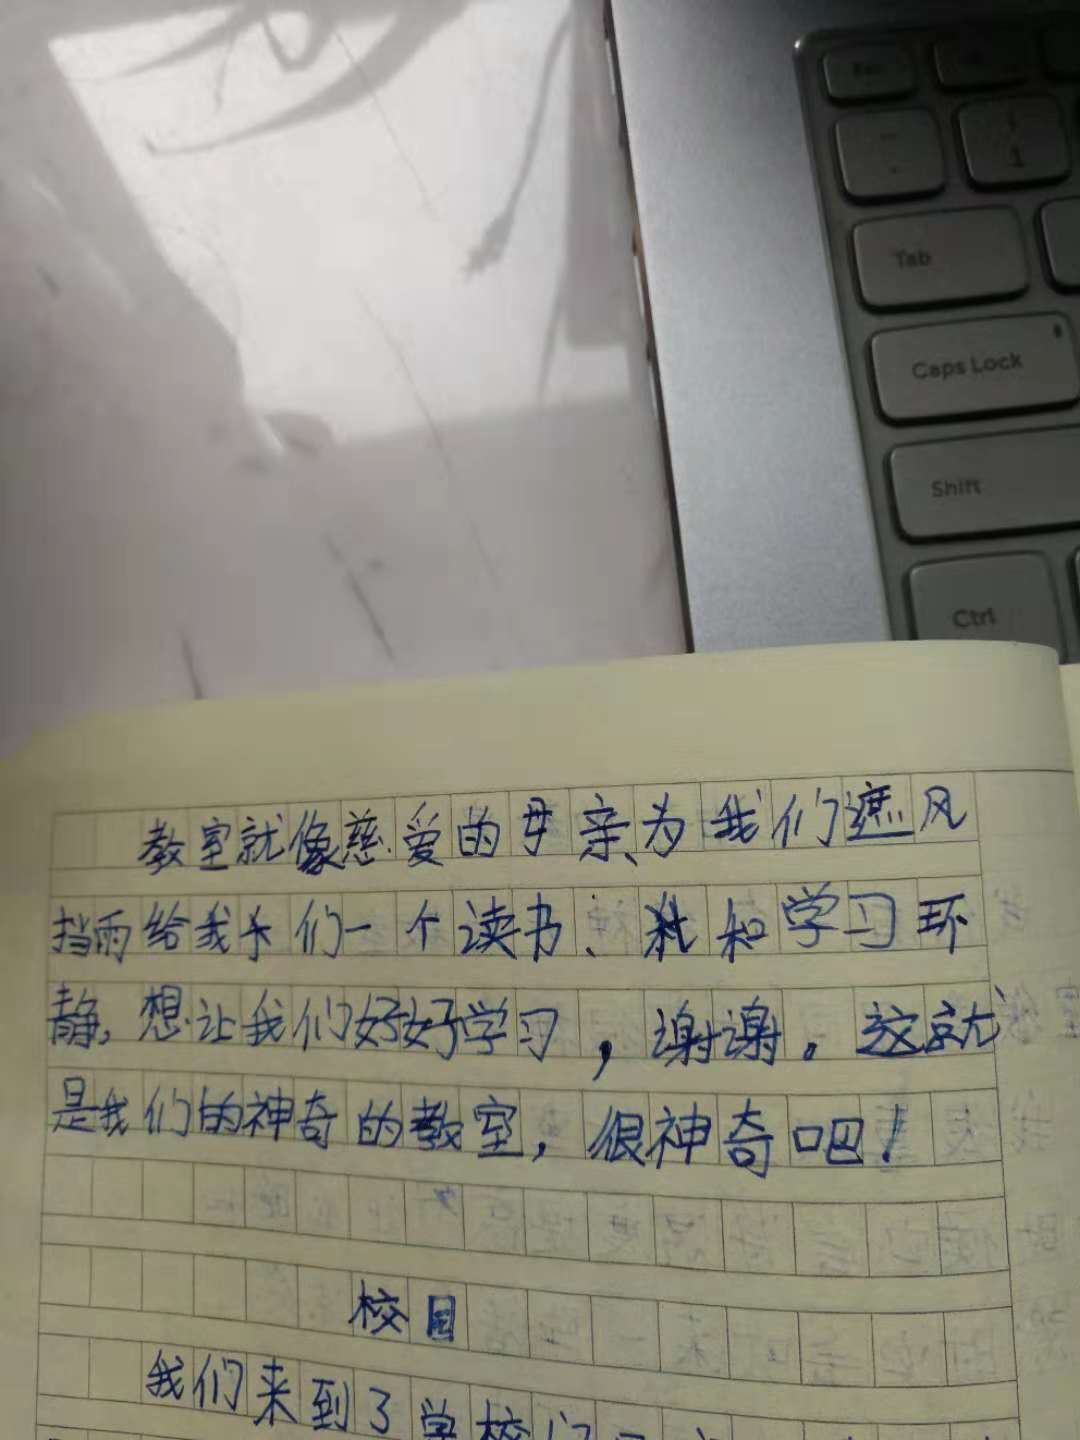 Tab
Caps Lock
Shift
Ctrl
教室就像慈爱的母亲、为我们遮风
挡雨给我们一个读书、和学习环
静,想让我们好好学习,谢谢。这就
是我们的神奇的教室,很神奇吧!
校园
我们来到了学校门